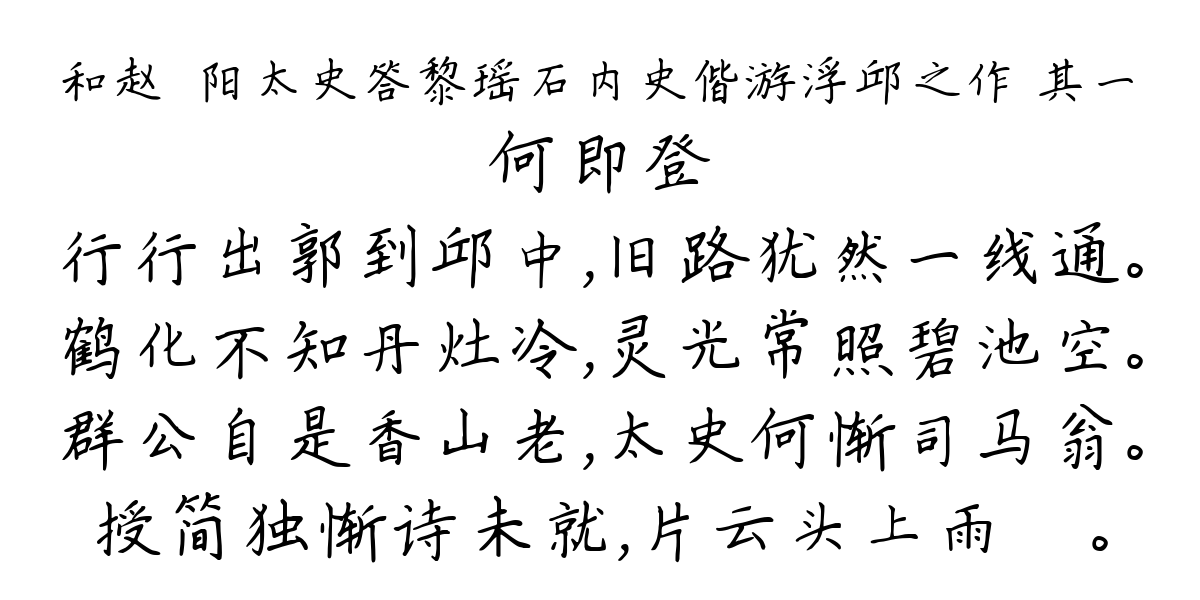 和赵 阳太史答黎瑶石内史偕游浮邱之作 其一
何即登
行行出郭到邱中,旧路犹然一线通。
鹤化不知丹灶冷,灵光常照碧池空。
群公自是香山老,太史何惭司马翁。
授简独惭诗未就,片云头上雨 。